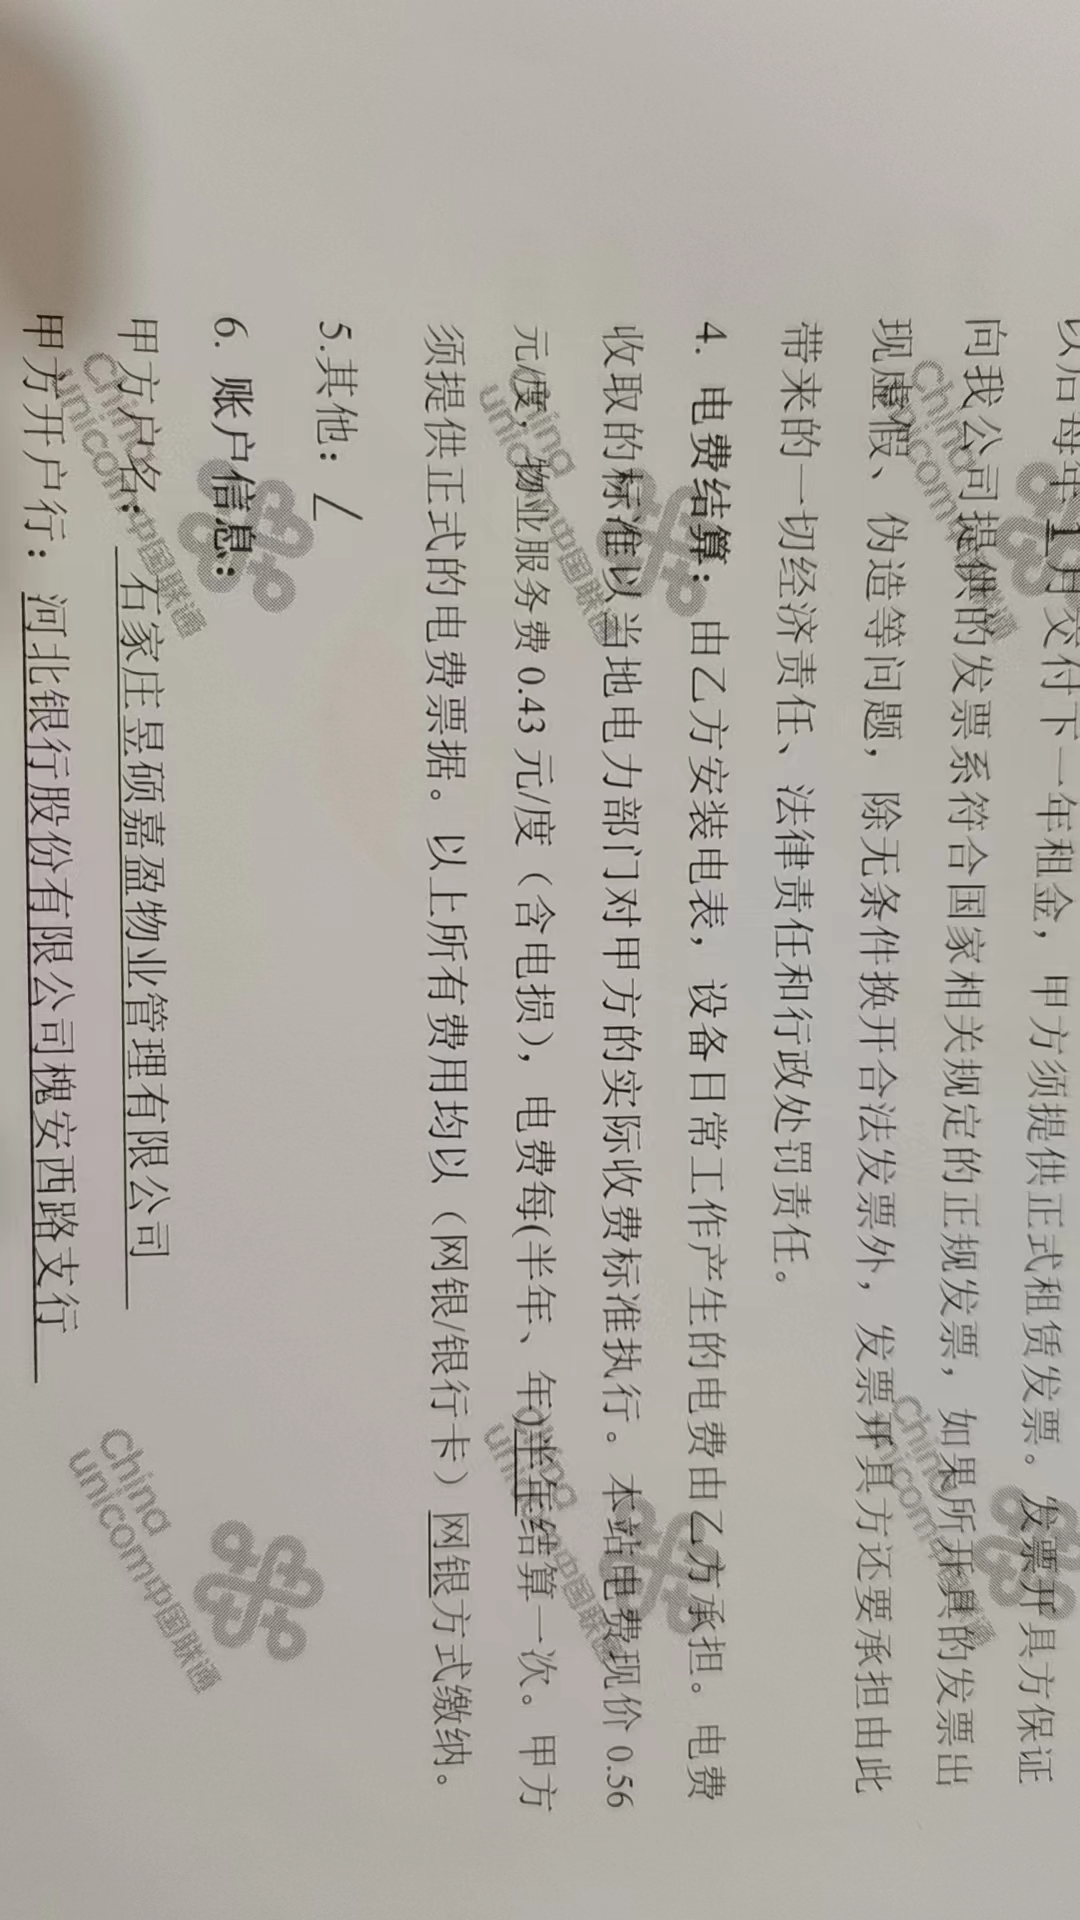 以后每年1月交付下一年租金，甲方须提供正式租赁发票。发票开具方保证
向我公司提供的发票系符合国家相关规定的正规发票，如果所开具的发票出
现虚假、伪造等问题，除无条件换开合法发票外，发票开具方还要承担由此
带来的一切经济责任、法律责任和行政处罚责任。
4. 电费结算：由乙方安装电表，设备日常工作产生的电费由乙方承担。电费
收取的标准以当地电力部门对甲方的实际收费标准执行。本站电费现价0.56
元/度，物业服务费0.43元/度（含电损），电费每(半年、年)半年结算一次。甲方
须提供正式的电费票据。以上所有费用均以（网银/银行卡）网银方式缴纳。
5.其他：/
6. 账户信息：
甲方户名：石家庄昱硕嘉盈物业管理有限公司
甲方开户行：河北银行股份有限公司槐安西路支行
China
unicom中国联通
China
unicom中国联通
China
unicom中国联通
China
unicom中国联通
China
unicom中国联通
China
unicom中国联通